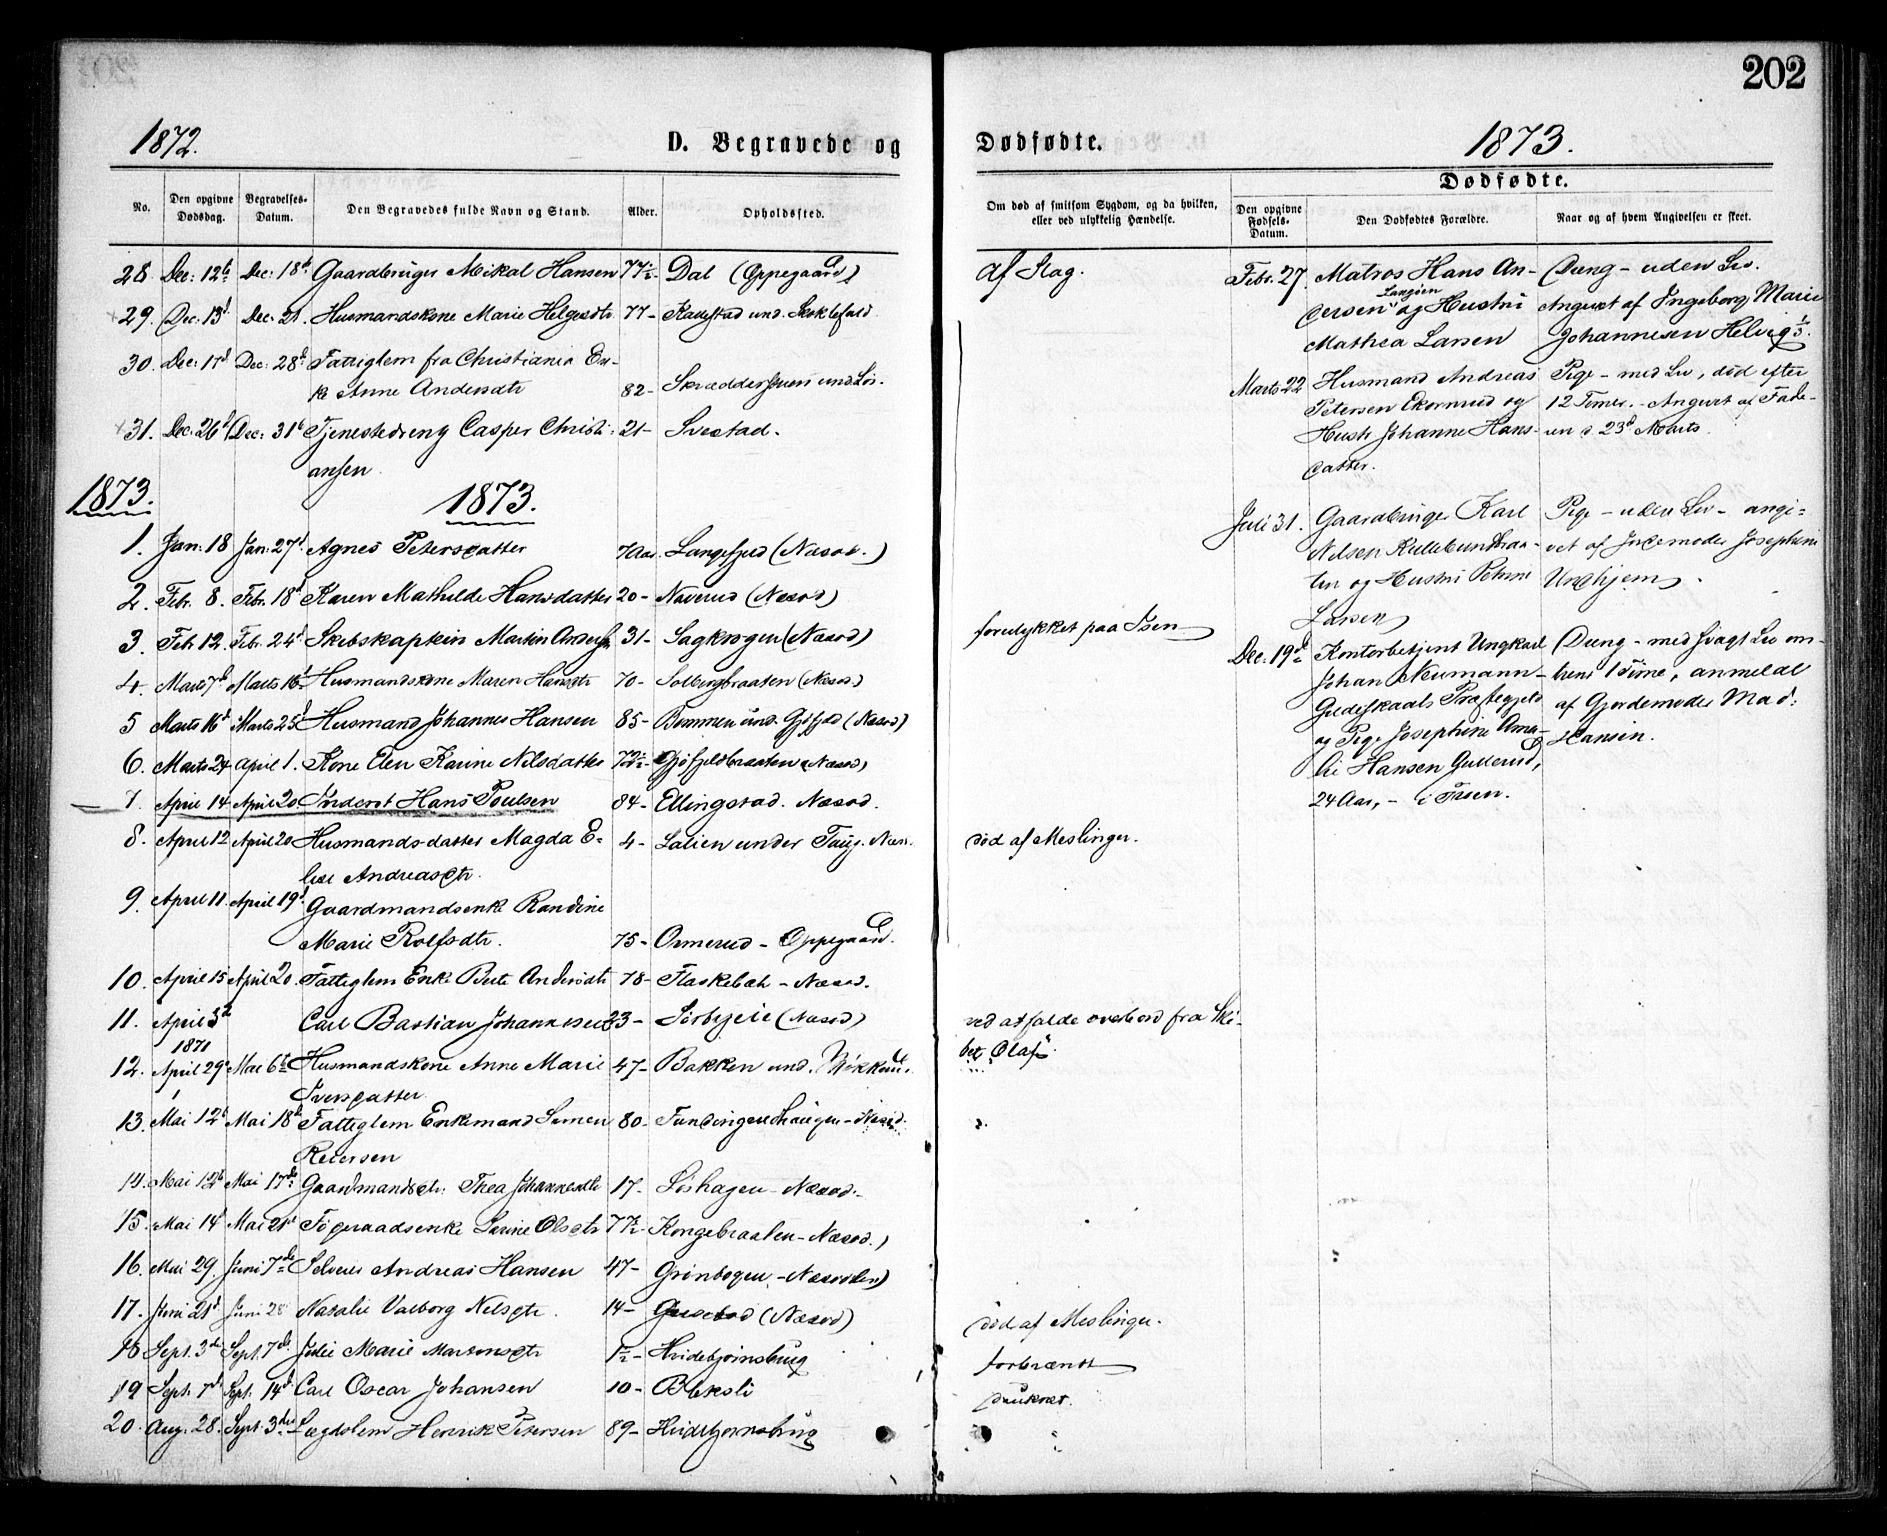 202
1872.
D. Begravede og
No.
Den opgivne Dødsdag.
Begravelses-Datum.
Den Begravedes fulde Navn og Stand.
Alder.
Opholdssted.
28. Dec: 12te Dec: 18de Gaardbruger Mikal Hansen 77½ Dal (Oppegaard)
29. Dec: 13d Dec: 21. Husmandskone Marie Helgesdtr 77- und. Skoklefald
30. Dec: 17d Dec: 28d Fattiglem fra Christiania En-
ke Anne Andersdtr 82-
31. Dec: 26d Dec: 31te Tjenestedreng Casper Christi- 21- Svestad.
ansen.
1873. 1873.
1. Jan: 18 Jan: 27d Agnes Petersdatter 7 Aar. Langefjed (Næsod.)
2. Febr. 8. Febr. 18d Karen Mathilde Hansdatter 20- Naverud (Næsod)
3. Feb. 12. Febr. 24d Skibskaptein Martin Anders. 31- Sagkrogen (Næsod)
4. Marts 7d Marts 16d Husmandskone Maren Hansdtr 70- Solbergbraaten (Næsod.)
5 Marts 16d Marts 25d Husmand Johannes Hansen 85- Bommen und. Gjøfjed (Næsod)
6. Marts 24 April 1. Kone Elen Karine Nilsdatter 72½- Gjøfjeldbraaten (Næsod)
7. April 14 April 20. Inderst Hans Poulsen 84- Ellingstad. Næsod.
8. April 12 April 20 Husmandsdatter Magda E- 4- Lalien under Næs.
lise Andreasdtr.
9. April 11. April 19d Gaardmandsenke Randine
Marie Rolfsdtr. 75- Ormerud - Oppegaard.
10. April 15 April 20. Fattiglem Enke Berte Andersdtr 78- Flaskebæk - Næsod.
11. April 3d Carl Bastian Johannesen 23- Sørbyeie (Næsod)
1871
12. April 29d Mai 6te Husmandskone Anne Marie 47- Bakken und.
Iversdatter
13. Mai 12d Mai 18d Fattiglem Enkemand Simen 80- Fundingrudhaugen - Næsod.
Pedersen
14. Mai 12d Mai 17de Gaardmandsdtr: Thea Johannesdtr 17- Søshagen - Næsod.
15. Mai 14d Mai 21d Føderaadsenke Karine Olsdtr 77½- Kongebraaten - Næsod.)
16. Mai 29. Juni 7de Selveier Andreas Hansen 47- Grønbogen - Næsodden)
17. Juni 21d Juni 28 Natalie Valborg Nelsdtr. 14- (Næsod)
18 Sept. 3de Sept. 7de Julie Marie Mortensdtr 1½- Hvidebjørnsbrug
19 Sept. 7d Sept. 14d Carl Oscar Johansen 10- Bleksli
20. Aug. 28. Sept. 3die Lægdslem Henrik Petersen 89- Hvidebjørnsbrug
Dødfødte. 1873.
Dødfødte.
Om død af smitsom Sygdom, og da hvilken, eller ved ulykkelig Hændelse.
Den opgivne Fødsels-Datum.
Den Dødfødtes Forældre.
Naar og af hvem Angivelsen er skeet.
af Slag.
forulykket paa Isen
død af Meslinger.
ved at falde overbord fra Ski-
bet "Olaf".
død af Meslinger.
forbrændt
druknet.
"
Febr. 27. Matros Hans An-
Langøen
dersen og Hustru
Mathea Larsen
Dreng - uden Liv.
Angivet af Ingeborg Marie
Johannesen Helvig
Marts 22 Husmand Andreas
Petersen Ekornrud og
Hustr Johanne Hans-
datter.
Pige - med Liv, død efter
12 Timer. - Angivet af Fade-
ren d 23d Marts.
Juli 31. Gaardbruger Karl
Nilsen Kullebundbraa-
ten og Hustru Petrine
Larsen
Pige - uden Liv - angi-
vet af Jordemoder Josephine
Undhjem.
Dec: 19de Kontorbetjent Ungkarl
Johan Neumann
Gildeskaals Præstegjeld
og Pige Josephine Ama-
lie Hansen Gulderud,
24 Aar, - i Frøen.
Dreng - med svagt Liv om-
trent 1 Time, anmeldt
af Gjordemoder Mad:
Hansen.